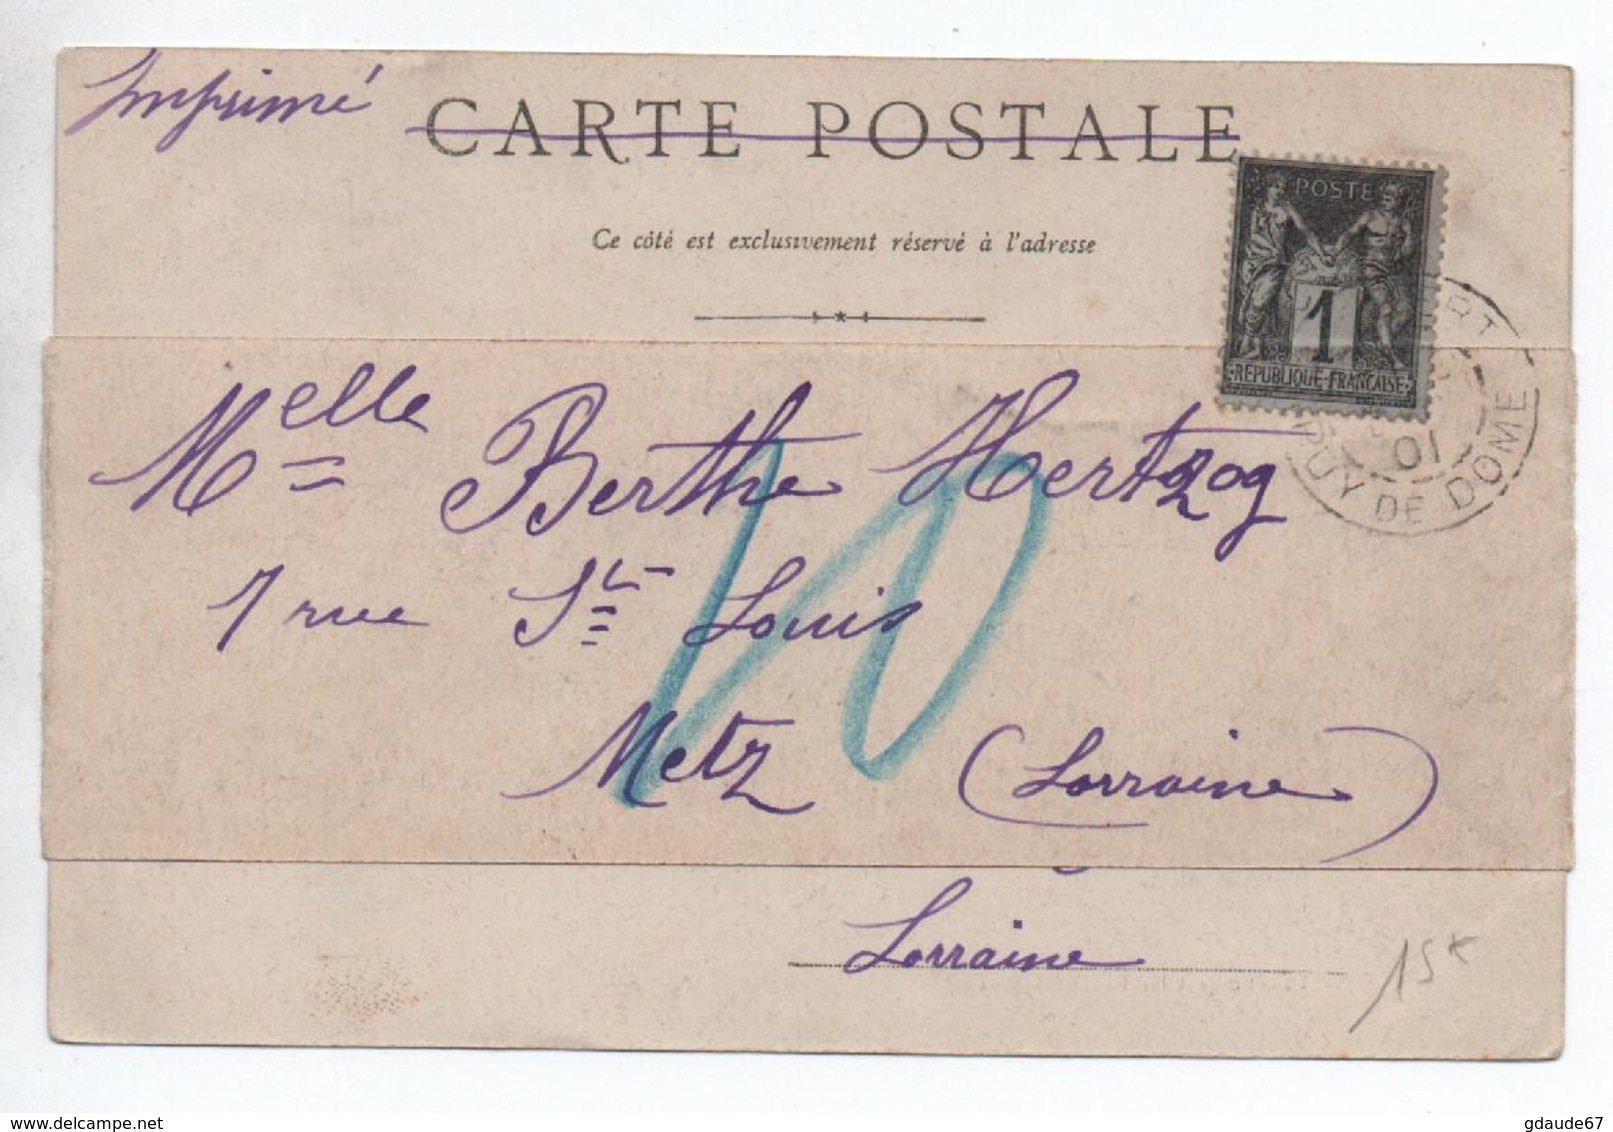 Imprimé
CARTE POSTALE
Ce côté est exclusivement réservé à l'adresse
POSTES
1
REPUBLIQUE FRANCAISE
01
PUY DE DOME
Melle Berthe Hertzog
10
7 rue St Louis
Metz (Lorraine)
Lorraine
15
delcampe.net
gdaude67